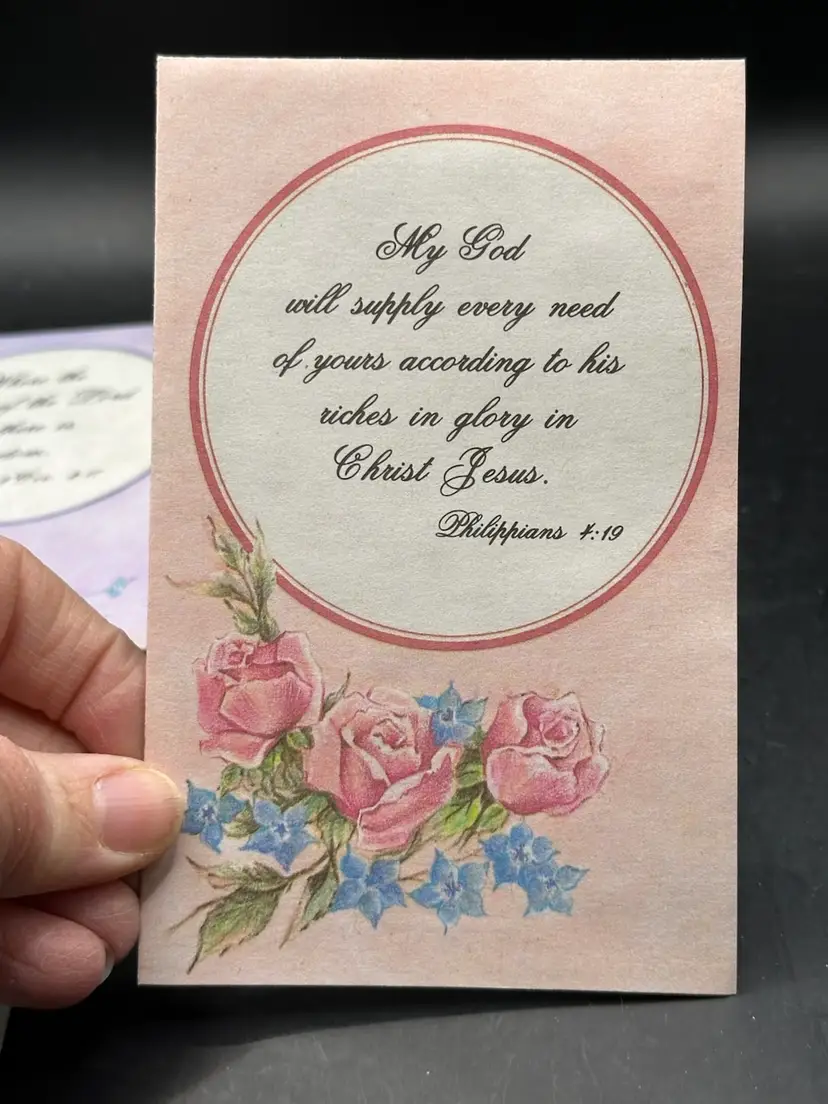 My God
will supply every need
of yours according to his
riches in glory in
Christ Jesus.
Philippians 4:19
the
of the